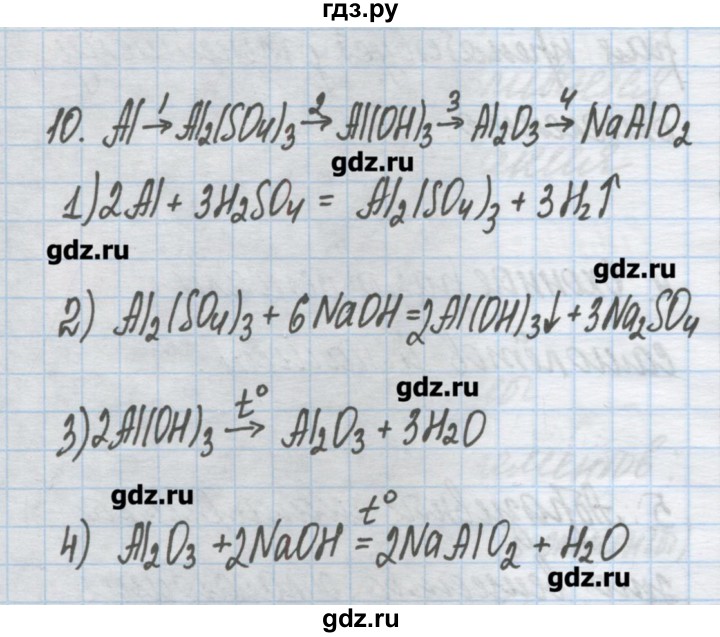 гдз.ру
10. Al →¹ Al₂(SO₄)₃ →² Al(OH)₃ →³ Al₂O₃ →⁴ NaAlO₂
gdz.ru
1) 2Al + 3H₂SO₄ = Al₂(SO₄)₃ + 3H₂↑
gdz.ru
gdz.ru
2) Al₂(SO₄)₃ + 6NaOH = 2Al(OH)₃↓ + 3Na₂SO₄
gdz.ru
3) 2Al(OH)₃ →t° Al₂O₃ + 3H₂O
gdz.ru
4) Al₂O₃ + 2NaOH =t° 2NaAlO₂ + H₂O
gdz.ru
gdz.ru